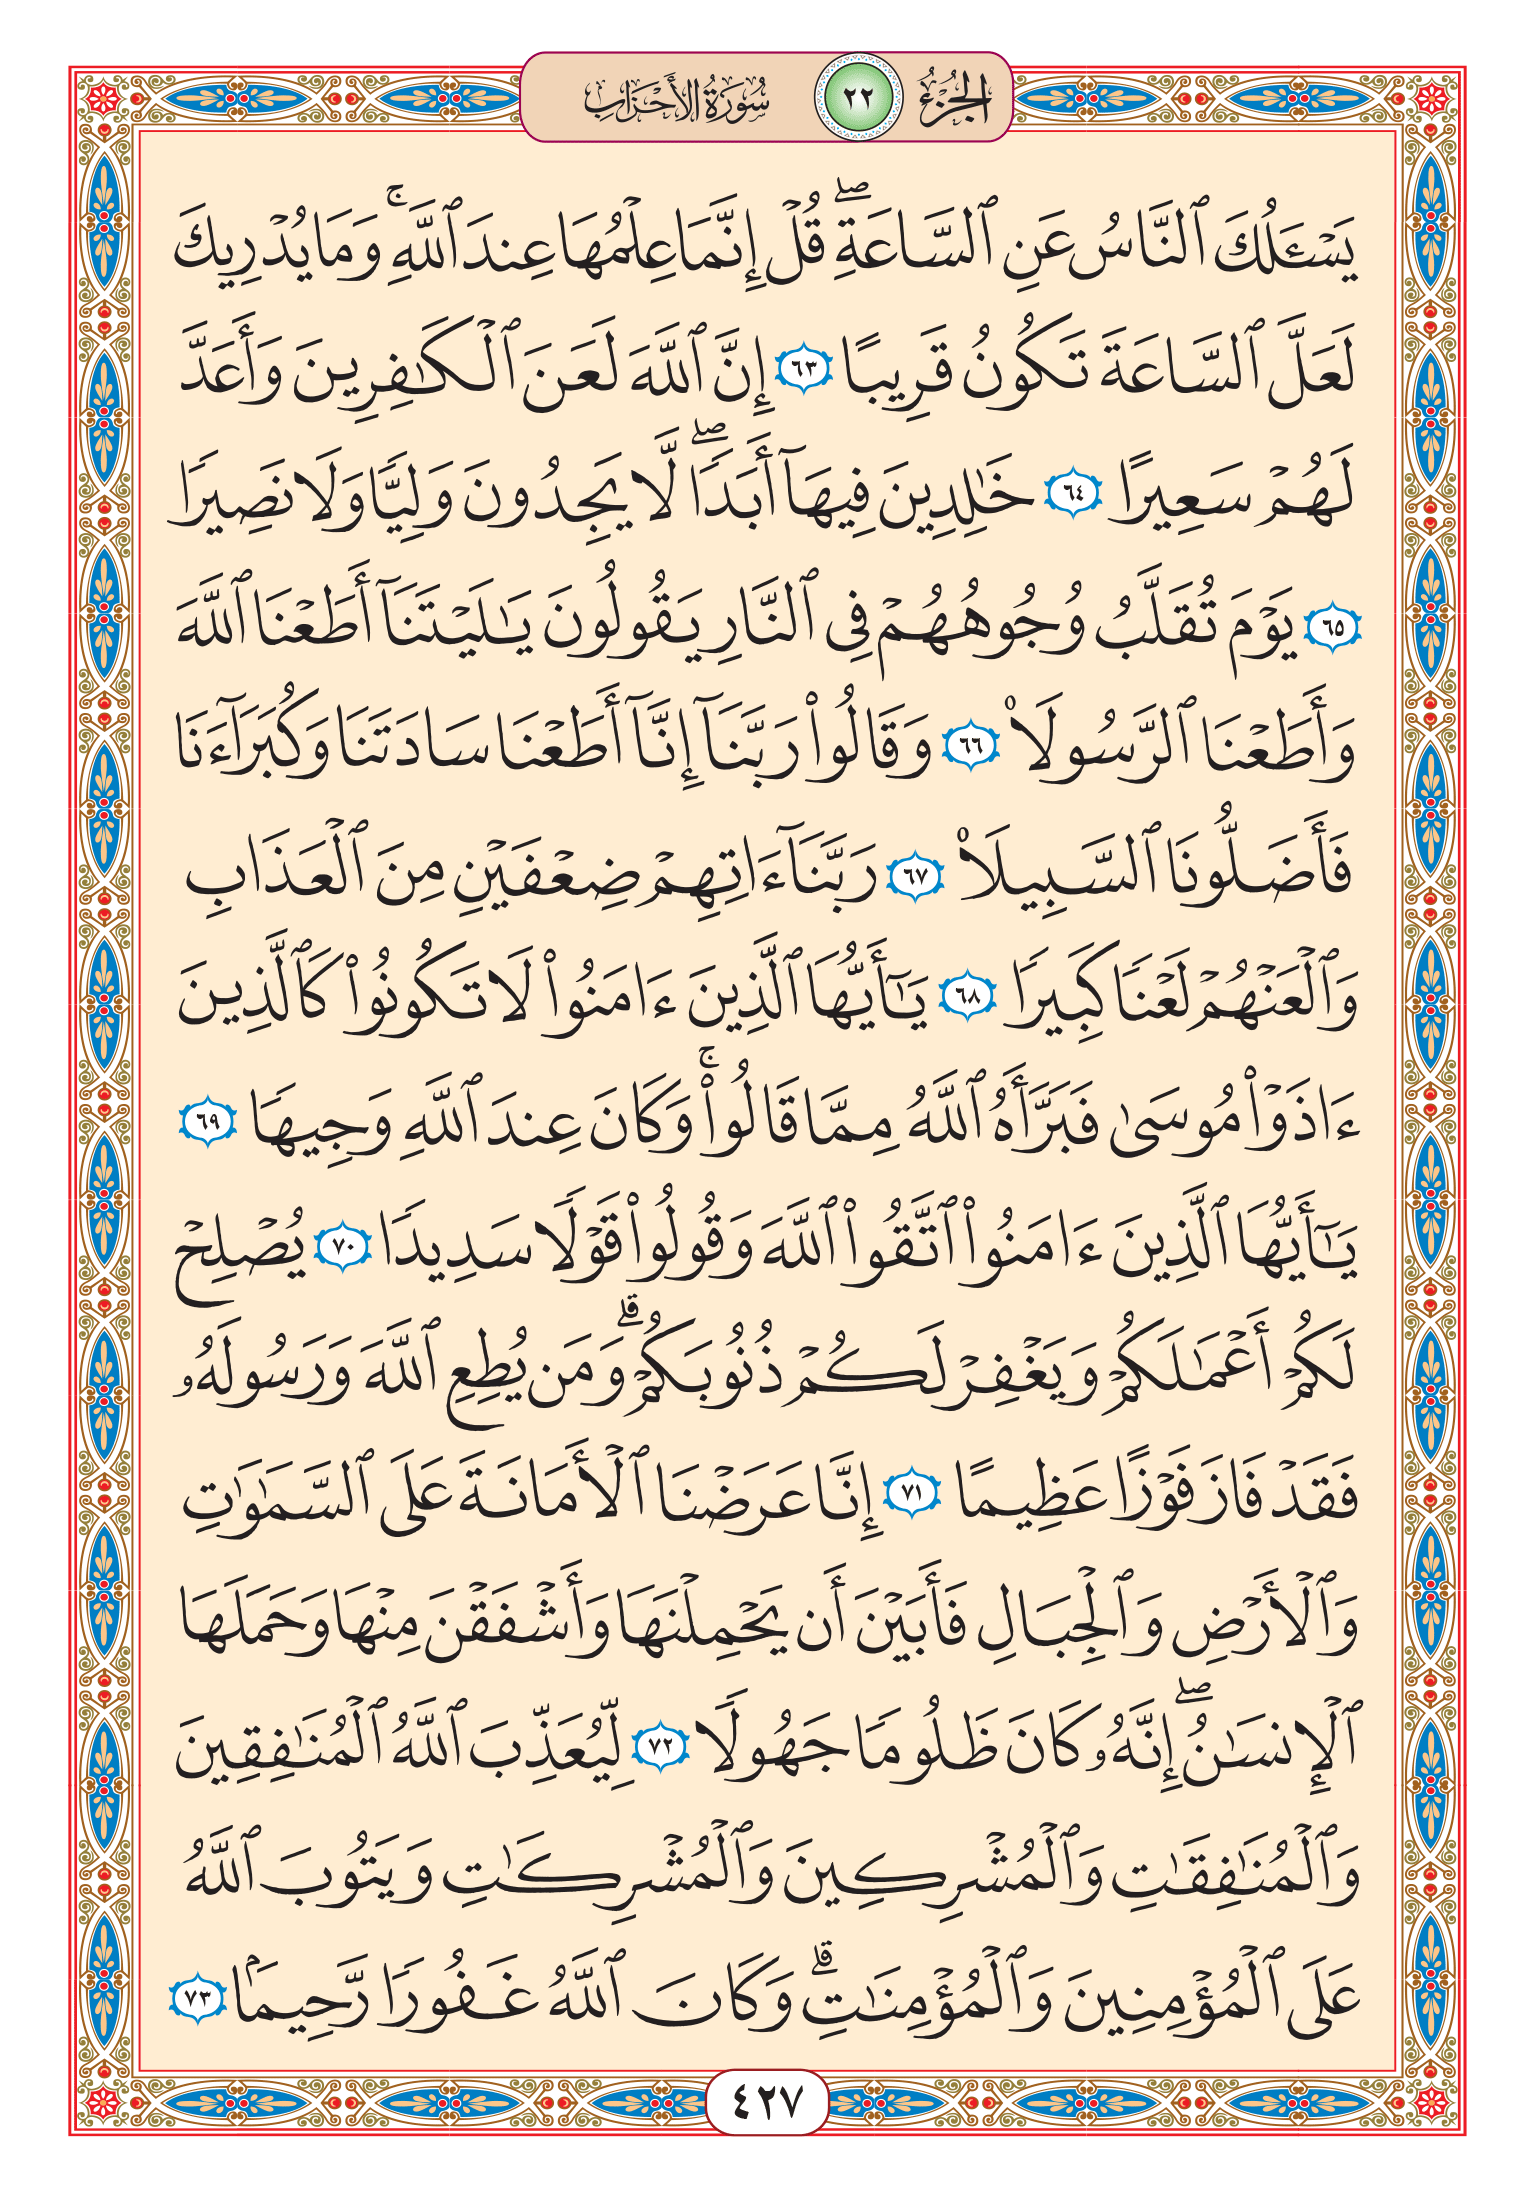 الجزء ٢٢ سورة الأحزاب
يَسْـَٔلُكَ ٱلنَّاسُ عَنِ ٱلسَّاعَةِۖ قُلْ إِنَّمَا عِلْمُهَا عِندَ ٱللَّهِۚ وَمَا يُدْرِيكَ
لَعَلَّ ٱلسَّاعَةَ تَكُونُ قَرِيبًا ٦٣ إِنَّ ٱللَّهَ لَعَنَ ٱلْكَٰفِرِينَ وَأَعَدَّ
لَهُمْ سَعِيرًا ٦٤ خَٰلِدِينَ فِيهَآ أَبَدًاۖ لَّا يَجِدُونَ وَلِيًّا وَلَا نَصِيرًا
٦٥ يَوْمَ تُقَلَّبُ وُجُوهُهُمْ فِى ٱلنَّارِ يَقُولُونَ يَٰلَيْتَنَآ أَطَعْنَا ٱللَّهَ
وَأَطَعْنَا ٱلرَّسُولَا۠ ٦٦ وَقَالُوا۟ رَبَّنَآ إِنَّآ أَطَعْنَا سَادَتَنَا وَكُبَرَآءَنَا
فَأَضَلُّونَا ٱلسَّبِيلَا۠ ٦٧ رَبَّنَآ ءَاتِهِمْ ضِعْفَيْنِ مِنَ ٱلْعَذَابِ
وَٱلْعَنْهُمْ لَعْنًا كَبِيرًا ٦٨ يَٰٓأَيُّهَا ٱلَّذِينَ ءَامَنُوا۟ لَا تَكُونُوا۟ كَٱلَّذِينَ
ءَاذَوْا۟ مُوسَىٰ فَبَرَّأَهُ ٱللَّهُ مِمَّا قَالُوا۟ۚ وَكَانَ عِندَ ٱللَّهِ وَجِيهًا ٦٩
يَٰٓأَيُّهَا ٱلَّذِينَ ءَامَنُوا۟ ٱتَّقُوا۟ ٱللَّهَ وَقُولُوا۟ قَوْلًا سَدِيدًا ٧٠ يُصْلِحْ
لَكُمْ أَعْمَٰلَكُمْ وَيَغْفِرْ لَكُمْ ذُنُوبَكُمْۗ وَمَن يُطِعِ ٱللَّهَ وَرَسُولَهُۥ
فَقَدْ فَازَ فَوْزًا عَظِيمًا ٧١ إِنَّا عَرَضْنَا ٱلْأَمَانَةَ عَلَى ٱلسَّمَٰوَٰتِ
وَٱلْأَرْضِ وَٱلْجِبَالِ فَأَبَيْنَ أَن يَحْمِلْنَهَا وَأَشْفَقْنَ مِنْهَا وَحَمَلَهَا
ٱلْإِنسَٰنُۖ إِنَّهُۥ كَانَ ظَلُومًا جَهُولًا ٧٢ لِّيُعَذِّبَ ٱللَّهُ ٱلْمُنَٰفِقِينَ
وَٱلْمُنَٰفِقَٰتِ وَٱلْمُشْرِكِينَ وَٱلْمُشْرِكَٰتِ وَيَتُوبَ ٱللَّهُ
عَلَى ٱلْمُؤْمِنِينَ وَٱلْمُؤْمِنَٰتِۗ وَكَانَ ٱللَّهُ غَفُورًا رَّحِيمًۢا ٧٣
٤٢٧